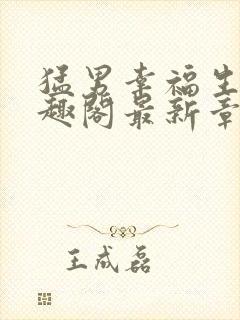 猛男幸福生
趣阁最新章
王成磊